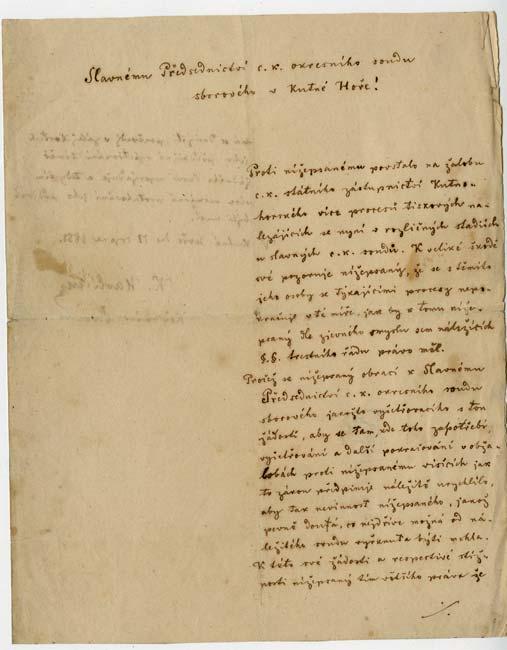 Slavnému Předsednictví c. k. okresního soudu
sborového v Kutné Hoře!
Proti nížepsanému povstalo na žalobu
c. k. státního zástupnictví Kutno-
horského více procesů tiskových na-
lézajících se nyní v rozličných stadiích
u slavných c. k. soudů. K veliké škodě
své pozoruje nížepsaný, že se s těmito
jeho osoby se týkajícími procesy nepo-
kračuje v té míře, jak by k tomu níže-
psaný dle zjevného smyslu sem náležících
§. §. trestního řádu právo měl.
Pročež se nížepsaný obrací k Slavnému
Předsednictví c. k. okresního soudu
sborového jakožto vyšetřovacího s tou
žádostí, aby se tam, kde toho zapotřebí,
vyšetřování a další pokračování v obža-
lobách proti nížepsanému visících jak
to zákon předpisuje náležitě urychlilo,
aby tak nevinnost nížepsaného, jakož
pevně doufá, co nejdříve možná od ná-
ležitého soudu vyřknuta býti mohla.
K této své žádosti a respective stíž-
nosti nížepsaný tím většího práva že